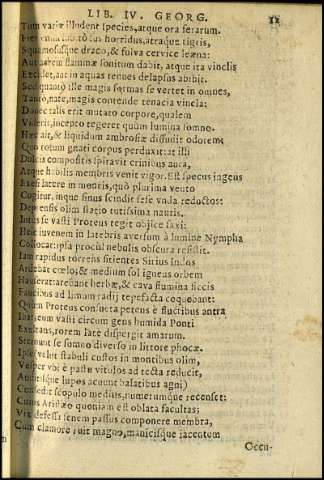 LIB. IV. GEORG.
11
Tum variæ illudent species, atque ora ferarum.
Fiet enim subitò sus horridus, atraque tigris,
Squamosusque draco, & fulva cervice leæna:
Aut acrem flammæ sonitum dabit, atque ita vinclis
Excidet, aut in aquas tenues delapsus abibit.
Sed quantò ille magis formas se vertet in omnes,
Tanto, nate, magis contende tenacia vincla:
Donec talis erit mutato corpore, qualem
Videris, incepto tegeret quum lumina somno.
Hæc ait, & liquidum ambrosiæ diffudit odorem:
Quo totum gnati corpus perduxit: at illi
Dulcis compositis spiravit crinibus aura,
Atque habilis membris venit vigor. Est specus ingens
Exesi latere in montis, quò plurima vento
Cogitur, inque sinus scindit sese unda reductos:
Deprensis olim statio tutissima nautis.
Intus se vasti Proteus tegit objice saxi:
Heic juvenem in latebris aversum à lumine Nympha
Collocat: ipsa procul nebulis obscura resistit.
Iam rapidus torrens sitientes Sirius Indos
Ardebat cœlo, & medium sol igneus orbem
Hauserat: arebant herbæ, & cava flumina siccis
Faucibus ad limum radij tepefacta coquebant:
Quum Proteus consueta petens è fluctibus antra
Ibat: eum vasti circum gens humida Ponti
Exultans, rorem latè dispergit amarum.
Sternunt se somno diversæ in littore phocæ.
Ipse velut stabuli custos in montibus olim,
Vesper ubi è pastu vitulos ad tecta reducit,
Auditisque lupos acuunt balatibus agni)
Consedit scopulo medius, numerumque recenset:
Cuius Aristæo quoniam est oblata facultas:
Vix defessa senem passus componere membra,
Cum clamore ruit magno, manicisque iacentem
Occu-